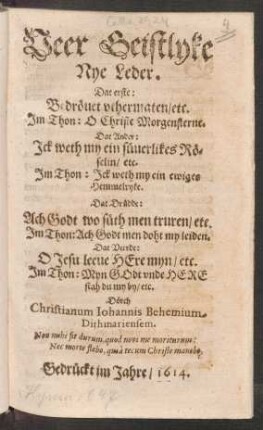 Veer Geistlyke
Nye Leder.
Dat erste:
Bedröuet vthermaten/etc.
Im Thon: O Christe Morgensterne.
Dat Ander:
Ick weth my ein süuerlikes Rö-
selin/ etc.
Im Thon: Ick weth my ein ewiges
Hemmelryke.
Dat Drüdde:
Ach Godt wo süth men truren/ etc.
Im Thon: Ach Godt men doht my leiden.
Dat Veerde:
O Jesu leeue HEre myn/ etc.
Im Thon: Myn GOdt vnde HERE
stah du my by/ etc.
Dörch
Christianum Iohannis Bohemium,
Dithmariensem.
Non mihi sit durum, quod novi me moriturum:
Nec morte flebo, quia tecum Christe manebo.
Gedrückt im Jahre/ 1614.